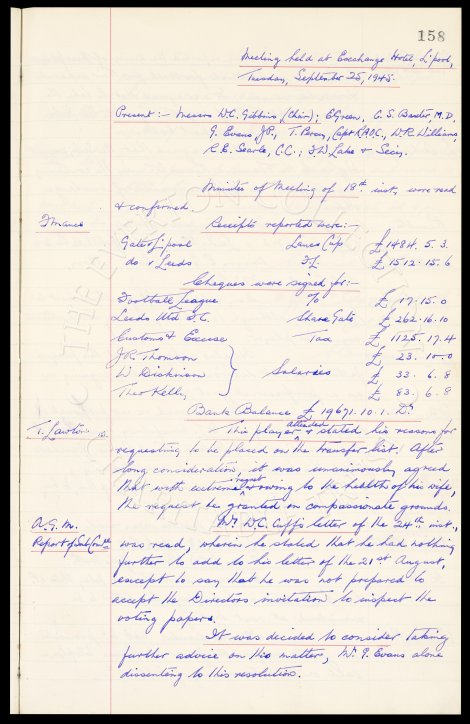 158
Meeting held at Exchange Hotel, L'pool,
Tuesday, September 25, 1945.
Present :- Messrs W.C. Gibbins (Chair); E. Green, C. S. Baxter, M.D.
G. Evans J.P., T. Percy, Capt R.A.O.C., W.R. Williams,
R.E. Searle, C.C.; & Secy.
Minutes of Meeting of 18th inst, were read
& confirmed.
Finance Receipts reported were:-
Gate v L'pool Lancs Cup £ 1484. 5. 3.
do v Leeds F.L. £ 1512. 15. 6
Cheques were signed for:-
Football League % £ 17. 15. 0
Leeds Utd F.C. Share Gate £ 262. 16. 10
Customs & Excise Tax £ 1125. 17. 4
J.R. Thomson £ 23. 10. 0
W Dickinson Salaries £ 33. 6. 8
Theo Kelly £ 83. 6. 8
Bank Balance £ 19671. 10. 1. Dr
T. Lawton This player attended & stated his reasons for
requesting to be placed on the transfer list. After
long consideration, it was unanimously agreed
that with extreme regret & owing to the health of his wife,
the request be granted on compassionate grounds.
A.G.M. Mr. W.C. Cuff's letter of the 24th inst,
Report of Sub Comtee was read, wherein he stated that he had nothing
further to add to his letter of the 21st August,
except to say that he was not prepared to
accept the Directors invitation to inspect the
voting papers.
It was decided to consider taking
further advice on this matter, Mr. G. Evans alone
dissenting to this resolution.